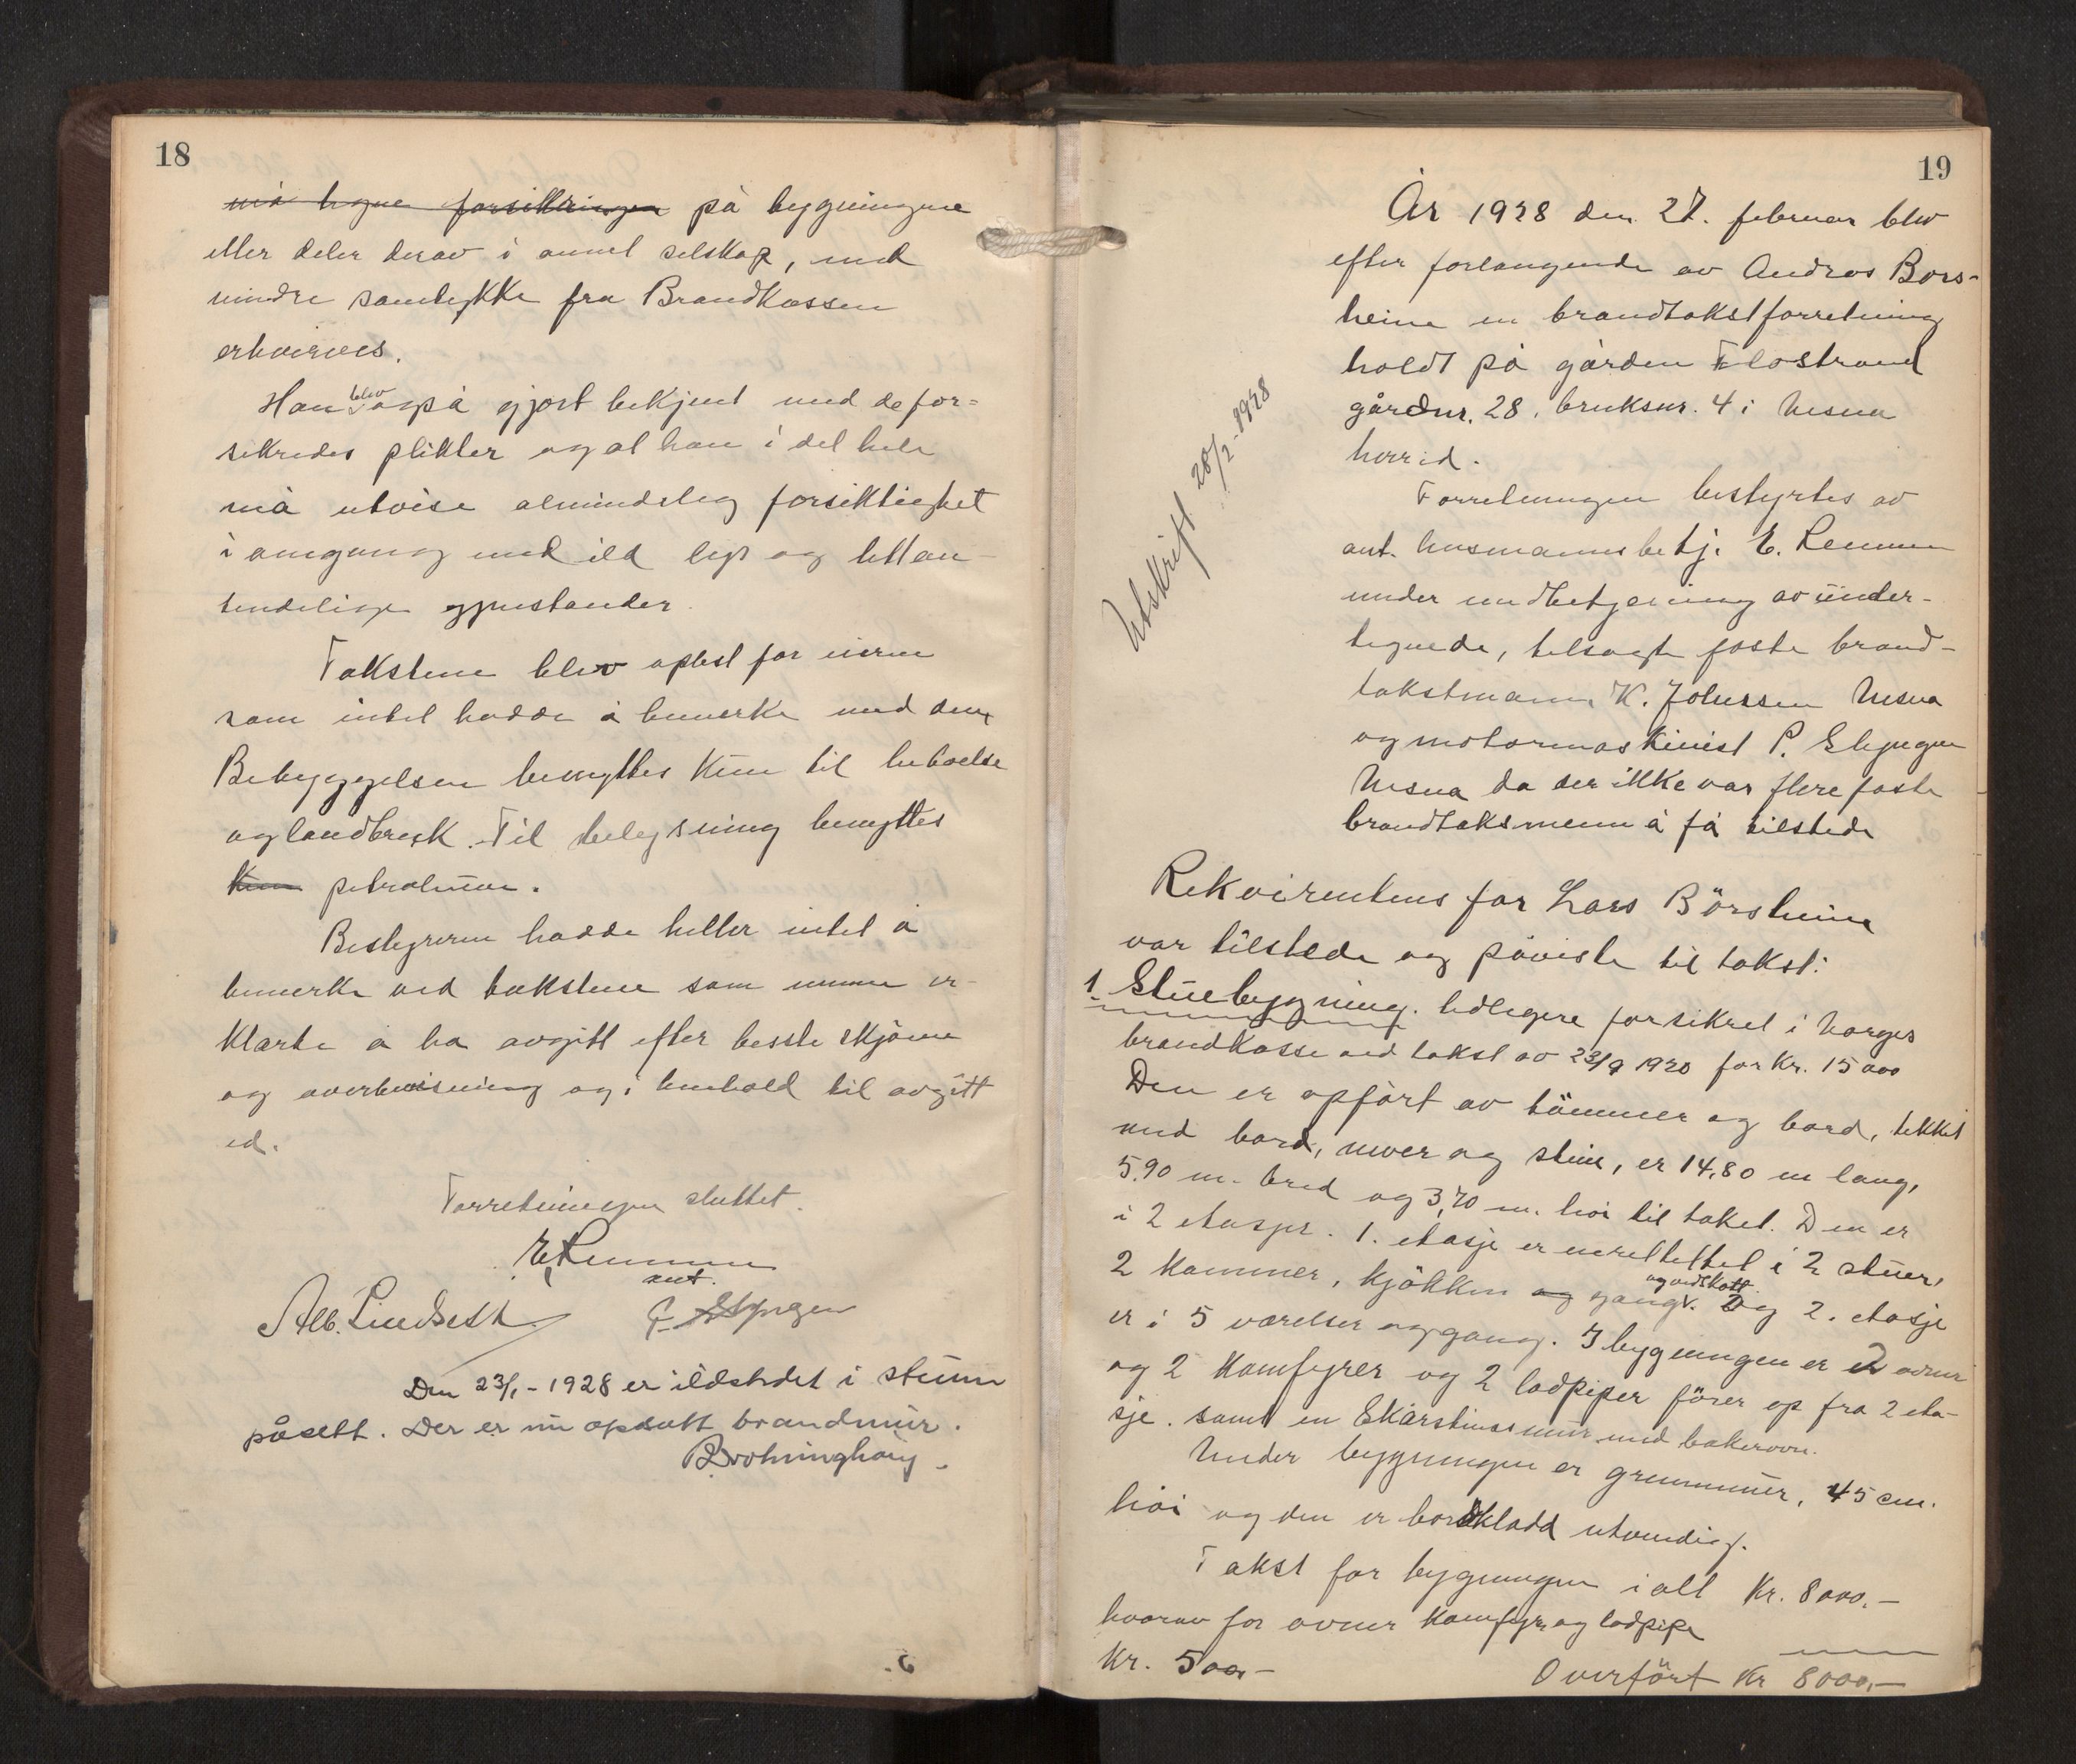 18
må tegne forsikringen på bygningene
eller deler derav i annet selskap, med
mindre samtykke fra Brandkassen
erhverves.
Han blev også gjort bekjent med de for-
sikredes plikter og at han i det hele
må utvise almindelig forsiktighet
i omgang med ild lys og lettan-
tendelige gjenstander.
Takstene blev oplest for eieren
som intet hadde å bemerke med dem
Bebyggelsen benyttes kun til beboelse
og landbruk. Til belysning benyttes
kun petroleum.
Bestyreren hadde heller intet å
bemerke ved takstene som mennene er-
klærte å ha avgitt efter beste skjønn
og overbevisning og i henhold til avgitt
ed.
Forretningen sluttet.
E. Remmen
ant.
Alb. Lindseth P. Styngen
Den 23/1-1928 er ildstedet i stuen
påsett. Der er nu opsatt brandmur.
19
År 1928 den 27. februar blev
efter forlangende av Andras Bors-
heim en brandtakstforretning
holdt på gården Flostrand
gårdnr. 28, bruksnr. 4 i Nesna
herred.
Forretningen bestyrtes av
ant. lensmannsbetj. E. Remmen
under medbetjening av under-
tegnede, tilsagte faste brand-
takstmann K. Johnssen Nesna
og motormaskinist P. Styngen
Nesna da der ikke var flere faste
brandtaksmenn å få tilstede
Utskrift 28/2-1928
Rekvirentens far Lars Börsheim
var tilstede og påviste til takst:
1. Stuebygning. tidligere forsikret i Norges
brandkasse ved takst av 23/9 1920 for Kr. 15000
Den er opført av tömmer og bord, tekket
med bord, never og stein, er 14,80 m lang,
5.90 m. bred og 3,70 m. höi til taket. Den er
i 2 etasjer. 1. etasje er innrettet i 2 stuer,
2 kammer, kjökken og gang og vedskott. Og 2. etasje
er i 5 værelser og gang. I bygningen er 2 ovner
og 2 komfyrer og 2 lodpiper förer op fra 2 eta-
sje. samt en Skorstensmur med bakerovn.
Under bygningen er grunnmur, 45 cm.
höi og den er bordkladd utvendig.
Takst for bygningen i alt Kr. 8000.-
hvorav for ovner komfyr og lodpipe
Kr. 500-
Overfört Kr 8000,-